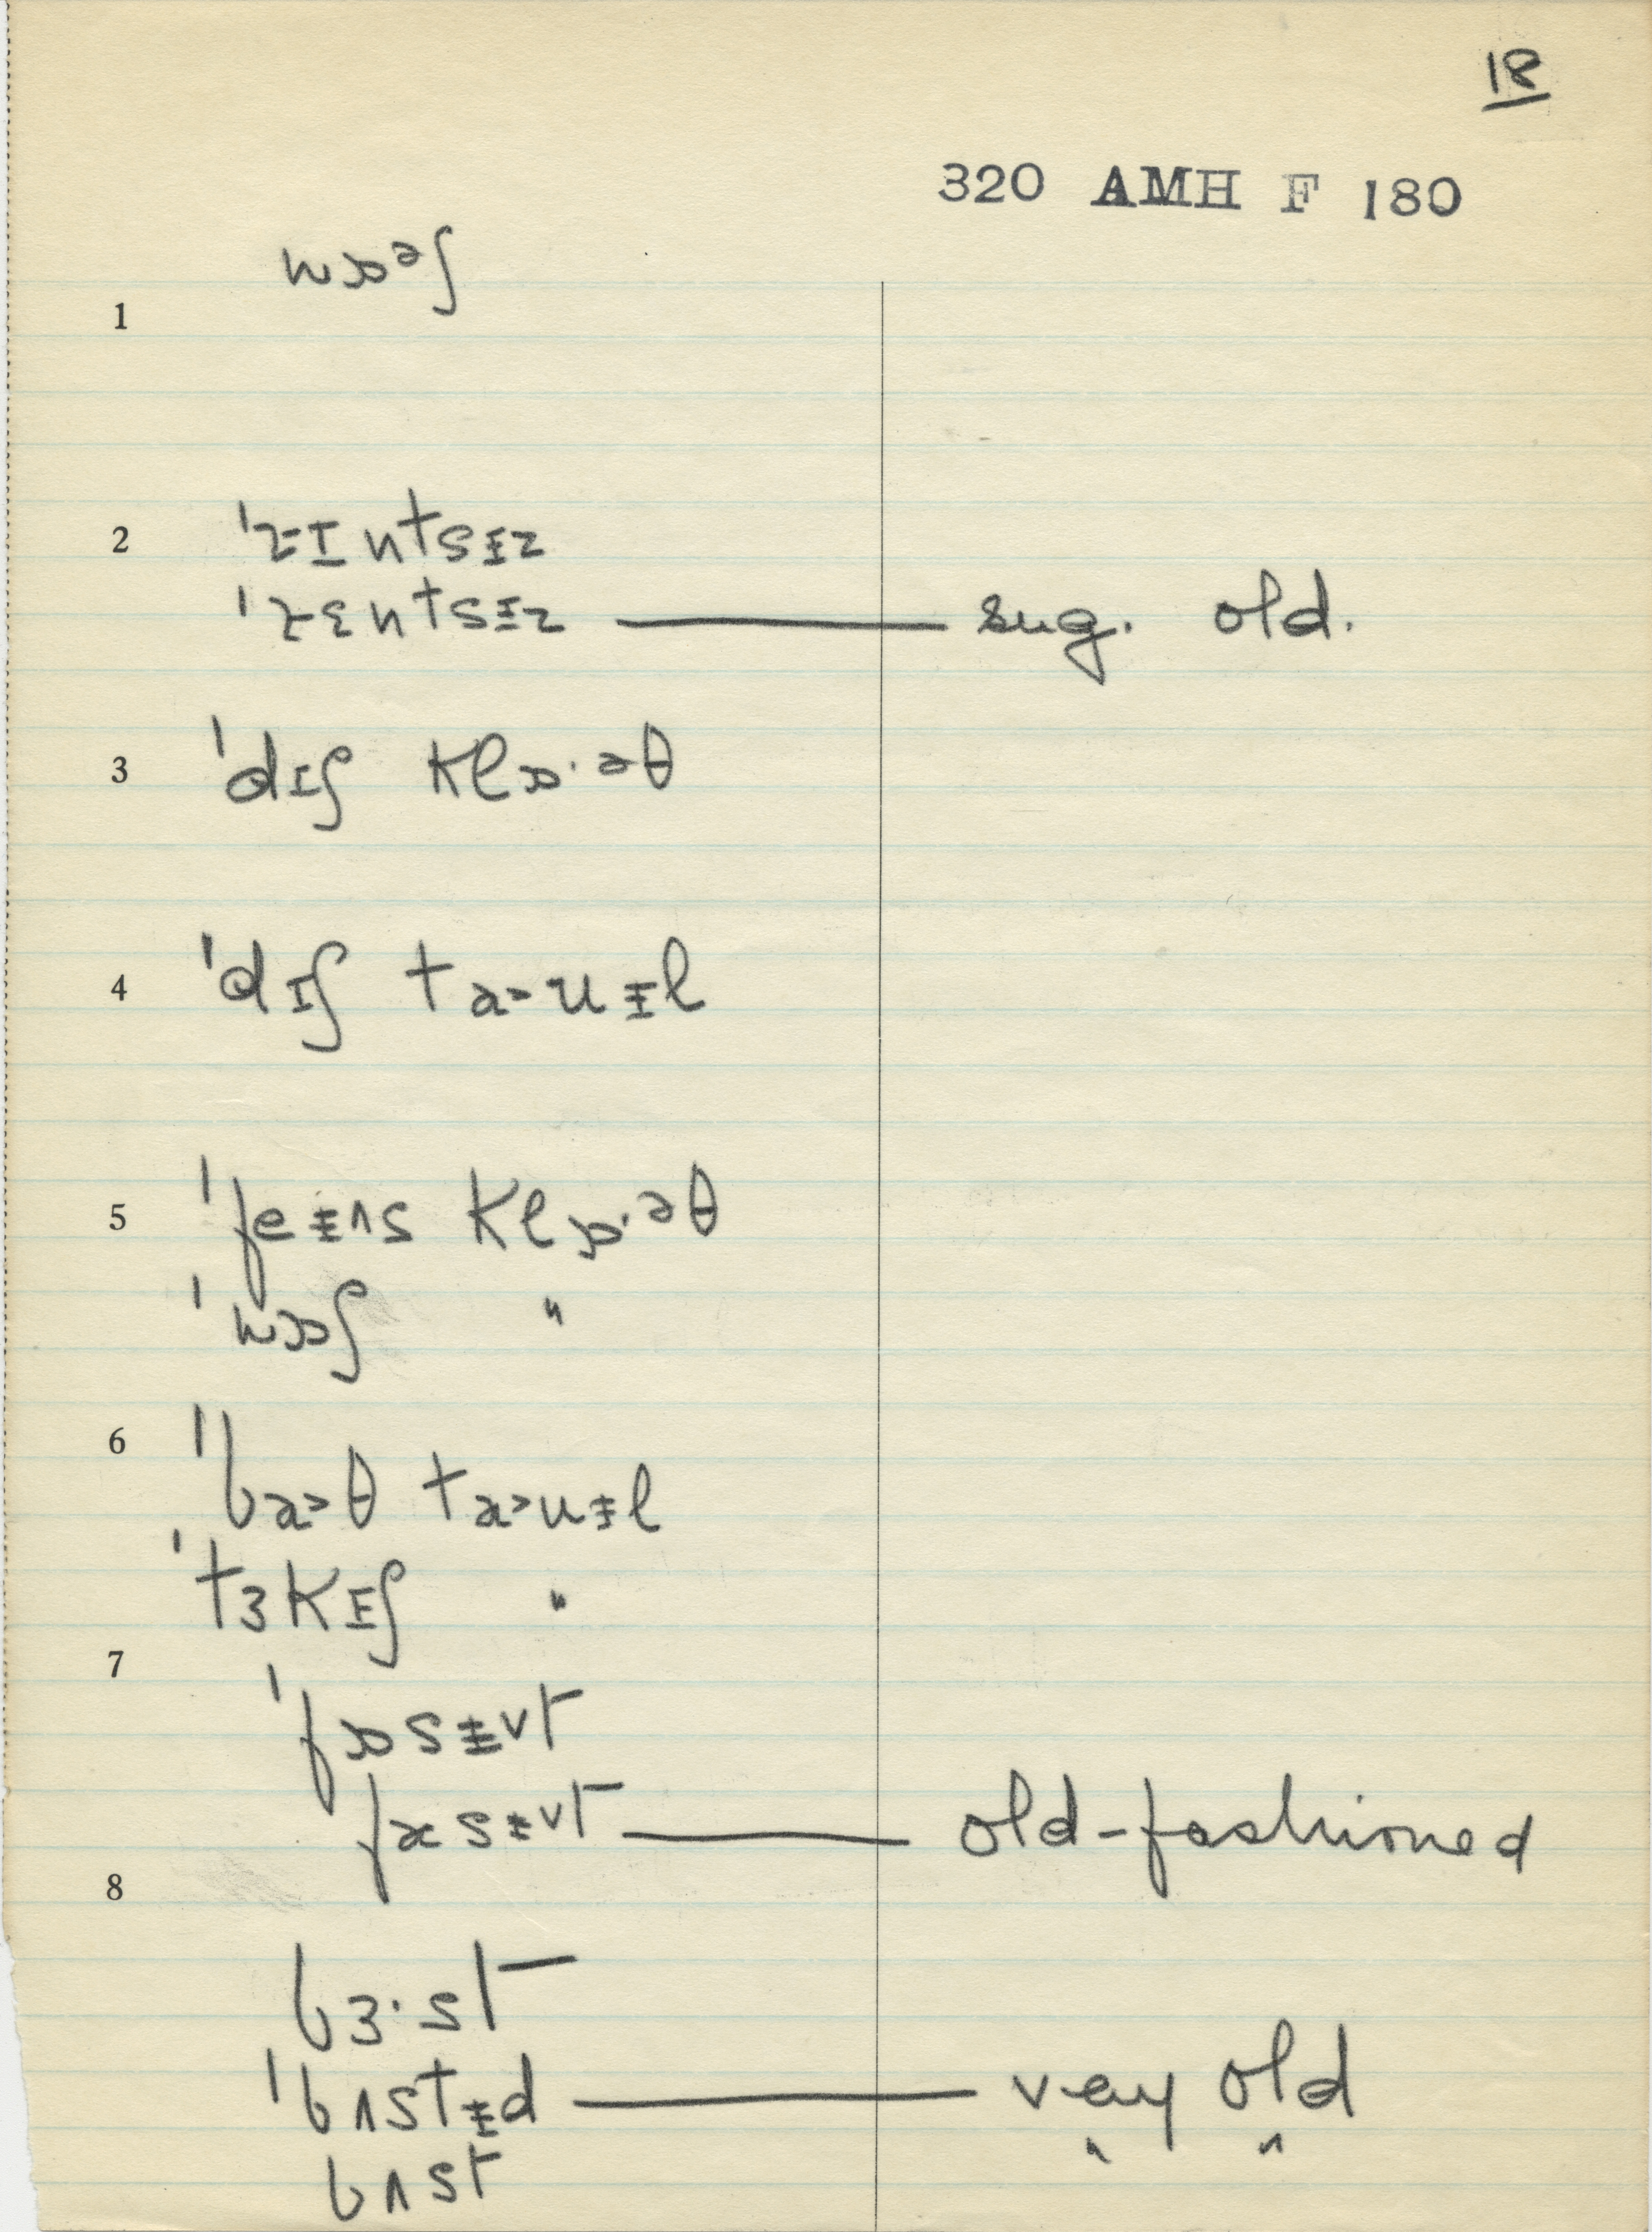 18
320 AMH F 180
wɒᵊʃ
1
2 ˈrɪntsɨz
ˈrɛntsɨz — sug. old.
3 ˈdɪʃ klɒ·əθ
4 ˈdɪʃ ta>uɨl
5 ˈfeɨʌs klɒ·əθ
ˈwɒʃ "
6 ˈba>θ ta>uɨl
ˈtɜkɪʃ "
7 ˈfɒsɨt
fɑsɨt — old-fashioned
8
bɜ·st
ˈbʌstɨd — very old
bʌst " "